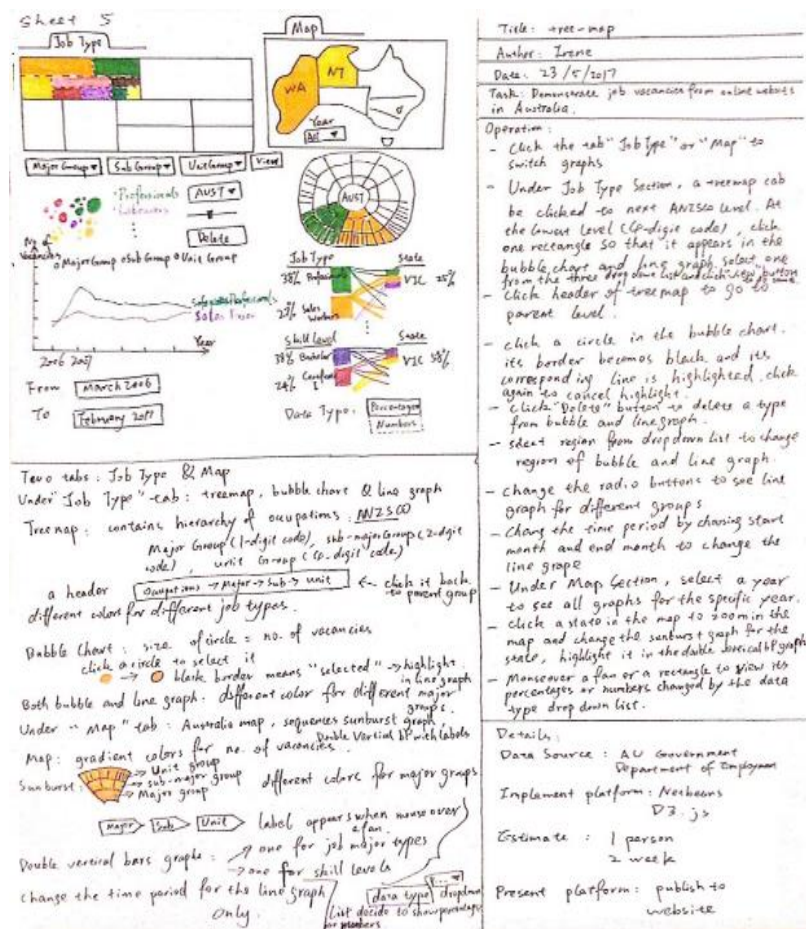 Sheet 5
Job Type
Major Group ▾ Sub Group ▾ Unit Group ▾ View
Professionals
Labourers
AUST ▾
Delete
No of
Vacancies
Major Group Sub Group Unit Group
Year
2006 2007
From March 2006
To February 2017
Map
WA
NT
Year
All ▾
AUST
Job Type State
38% Professionals VIC 25%
Sales
Workers
Skill Level State
38% Bachelor VIC 38%
24% Certificate
I
Data Type: Percentages
Numbers
Two tabs: Job Type & Map
Under "Job Type" tab: treemap, bubble chart & line graph
Tree map: contains hierarchy of occupations: ANZSCO
Major Group (1-digit code), sub-major Group (2-digit
code), unit Group (4-digit code)
a header Occupations → Major → Sub → Unit ← click it back
to parent group
different colors for different job types.
Bubble Chart: size of circle = no. of vacancies
click a circle to select it
→ black border means "selected" → highlight
in line graph
Both bubble and line graph. different color for different major
groups.
Under "Map" tab: Australia map, sequences sunburst graph,
Double Vertical bP with labels
Map: gradient colors for no. of vacancies.
Sunburst: → Unit group
→ sub-major group
→ Major group
different colors for major groups
Major Sub Unit label appears when mouse over
a fan.
Double vertical bars graphs: → one for job major types
→ one for skill levels
change the time period for the line graph
only.
data type dropdown
list decide to show percentage
or numbers.
Title: tree-map
Author: Irene
Date: 23/5/2017
Task: Demonstrate job vacancies from online websits
in Australia.
Operation:
- Click the tab "Job Type" or "Map" to
switch graphs
- Under Job Type Section, a treemap cab
be clicked to next ANZSCO level. At
the lowest level (4-digit code), click
one rectangle so that it appears in the
bubble chart and line graph. select one
from the three drop down list and click view button
- Click header of treemap to go to
parent level.
- click a circle in the bubble chart.
its border becomes black and its
corresponding line is highlighted. click
again to cancel highlight.
- click "Delete" button to delete a type
from bubble and line graph.
- select region from dropdown list to change
region of bubble and line graph.
- change the radio buttons to see line
graph for different groups
- Chang the time period by chosing start
month and end month to change the
line grape
- Under Map Section, select a year
to see all graphs for the specific year.
- click a state in the map to zoom in the
map and change the sunburst graph for the
state, highlight it in the double vertical bP graph
- Mouseover a fan or a rectangle to view its
percentages or numbers changed by the data
type drop down list.
Details:
Data Source: AU Government
Department of Employmen
Implement platform: Netbeans
D3.js
Estimate: 1 person
2 week
Present platform: publish to
website